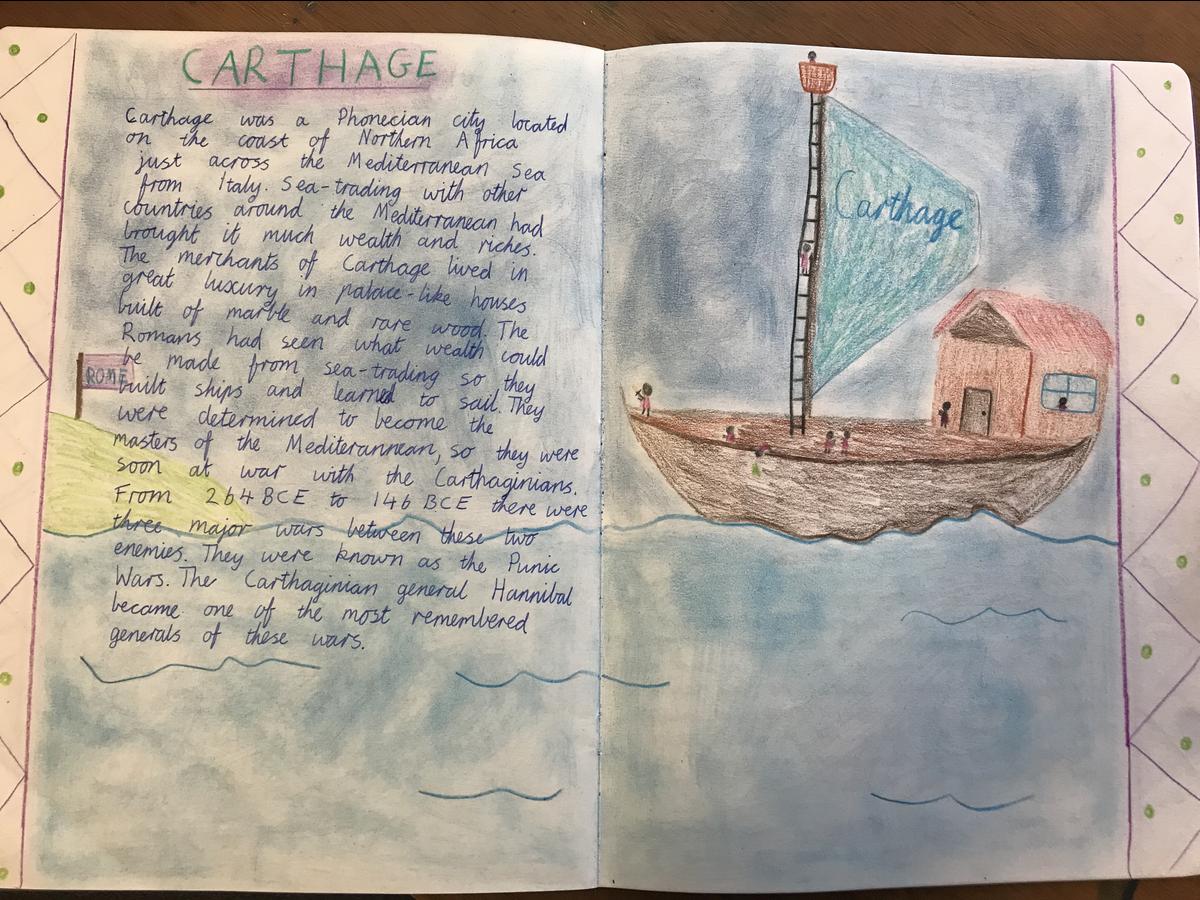 CARTHAGE
Carthage was a Phonecian city located
on the coast of Northern Africa
just across the Mediterranean Sea
from Italy. Sea-trading with other
countries around the Mediterranean had
brought it much wealth and riches.
The merchants of Carthage lived in
great luxury in palace-like houses
built of marble and rare wood. The
Romans had seen what wealth could
be made from sea-trading so they
built ships and learned to sail. They
were determined to become the
masters of the Mediterannean, so they were
soon at war with the Carthaginians.
From 264 BCE to 146 BCE there were
three major wars between these two
enemies. They were known as the Punic
Wars. The Carthaginian general Hannibal
became one of the most remembered
generals of these wars.
ROME
Carthage